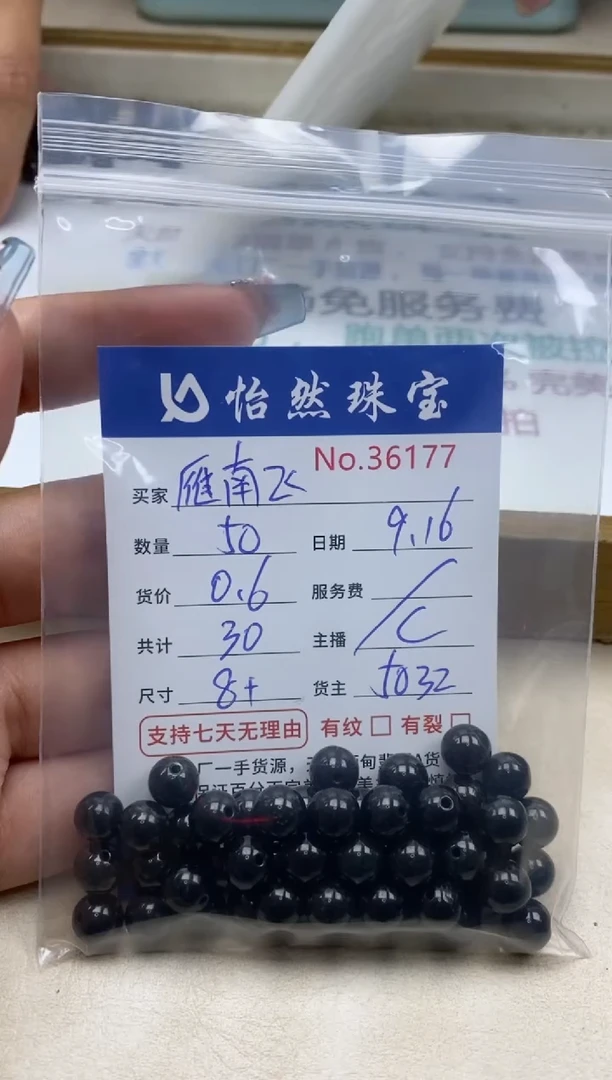 免服务费
怡然珠宝
No.36177
买家 雁南飞
数量 50 日期 9.16
货价 0.6 服务费 /
共计 30 主播 C
尺寸 8+ 货主 5032
支持七天无理由 有纹 □ 有裂 □
厂一手货源，